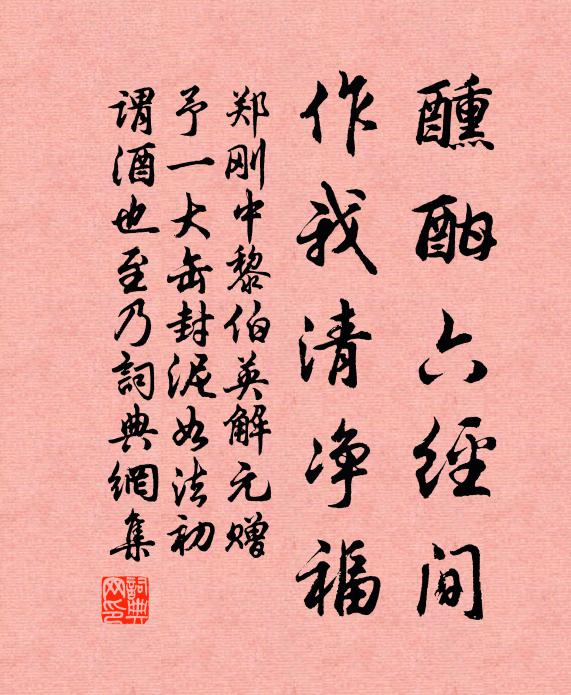 醺酣六經间
作我清净福
郑刚中黎伯英解元赠
予一大缶封泥如法初
谓酒也至乃詞典網集
詞典
网印